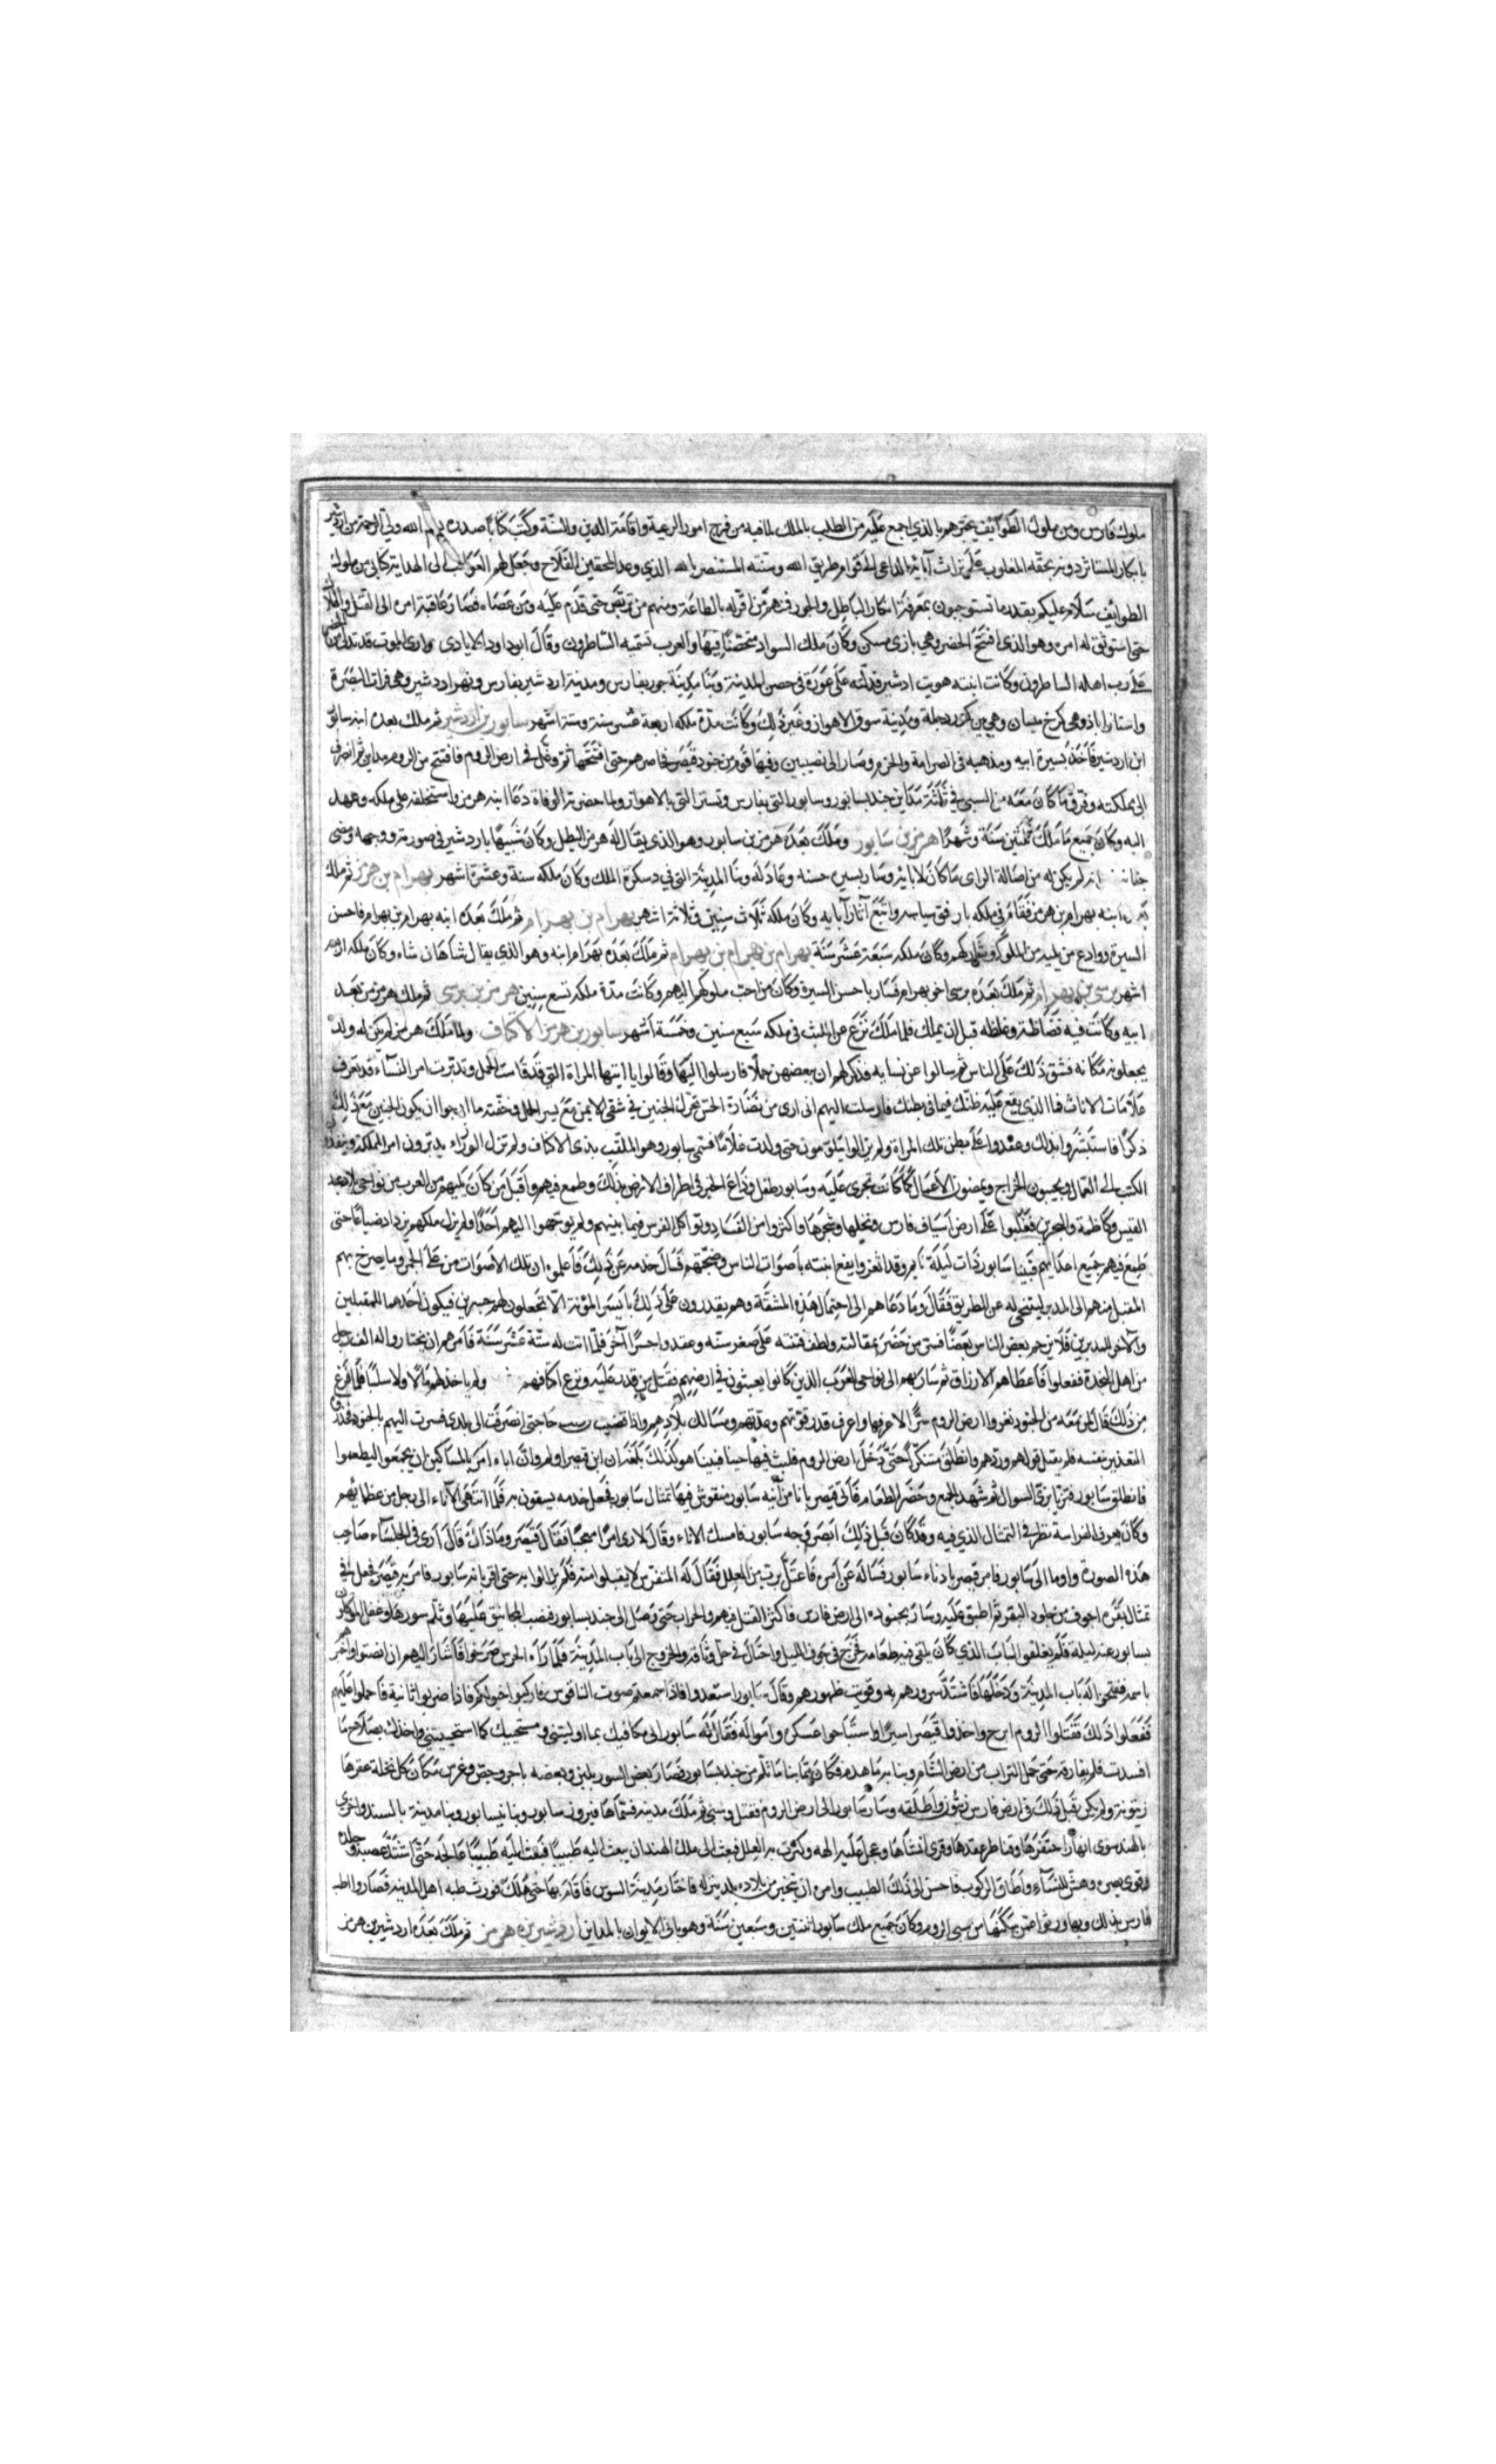 ملوك فارس ومن ملوك الطوائف يخبرهم بالذي اجمع عليه من الطلب بالملك لما فيه من فرج امور الرعية واقامة الدين والسنة وكتب كتابا صدره بسم الله ولي الرحمة من اردشير
بابكان المستاثر دونه بحقه المغلوب على تراث آبائه الداعى الى قوام طريق الله وسنته المستنصر بالله الذي وعد المحقين الفلاح وجعل لهم العواقب الى من بلغه كتابي من ملوك
الطوايف سلام عليكم بقدر ما تستوجبون بمعرفة انكار الباطل والجور فمنهم من اقر له بالطاعة ومنهم من تربص حتى قدم عليه ومن عصاه فصار عاقبة امره الى القتل والهلاك
حتى استوثق له امره وهو الذي افتتح الحضر وهي بازى مسكن وكان ملك السواد متحصنا فيها والعرب تسميه الساطرون وقال ابو داود الايادى وارى الموت قد تدلى من الحضر
على رب اهله الساطرون وكانت ابنته هويت ادشير فدلته على عورة في حصن المدينة وبنا مدينة جور بفارس ومدينة اردشير بفارس وبهمن اردشير وهي فرات البصرة
واستاراباد وهي كرخ ميسان وهي من كور دجلة ومدينة سوق الاهواز وغير ذلك وكانت مدة ملكه اربعة عشر سنة وستة اشهر سابور بن اردشير ثم ملك بعده ابنه سابور
ابن اردشير فاخذ بسيرة ابيه ومذهبه في الصرامة والحزم وصار الى نصيبين وفيها قوم من جنود قيصر فحاصرهم حتى افتتحها ثم وغل في ارض الروم فافتتح من الروم مداين ثم انصرف
الى مملكته وفرق ما كان معه من السبى في ثلثة مداين جنديسابور وسابور التي بفارس وتستر التي بالاهواز ولما حضرته الوفاة دعا ابنه هرمز واستخلفه على ملكه وعهد
اليه وكان جميع ما ملك ثلثين سنة وشهرا هرمز بن سابور وملك بعده هرمز بن سابور وهو الذي يقال له هرمز البطل وكان شبيها باردشير في صورته ووجهه ومضى
انه لم يكن له من اصالة الراى ما كان لابائه وسار بسيرة حسنه وعادله وبنا المدينة التي في دسكرة الملك وكان ملكه سنة وعشرة اشهر بهرام بن هرمز ثم ملك
ابنه بهرام بن هرمز فقام في ملكه بارفق سياسه واتبع آثار آبايه وكان ملكه ثلاث سنين وثلاثة اشهر بهرام بن بهرام ثم ملك بعده ابنه بهرام بن بهرام فاحسن
السيرة ووادع من يليه من الملوك وكان ملكه سبعة عشر سنة بهرام بن بهرام بن بهرام ثم ملك بعده بهرام ابنه وهو الذي يقال شاهان شاه وكان ملكه اربعة
اشهر نرسى بن بهرام ثم ملك بعده نرسى اخو بهرام فسار باحسن السيرة وكان من احب ملوكهم اليهم وكانت مدة ملكه تسع سنين هرمز بن نرسى ثم ملك هرمز من بعد
ابيه وكانت فيه فضاظة وغلظه قبل ان يملك فلما ملك نزع عن في ملكه سبع سنين وخمسة اشهر سابور بن هرمز الاكتاف ولما هلك هرمز لم يكن له ولد
يجعلونه مكانه فشق ذلك على الناس ثم سالوا عن نسايه فذكر لهم ان ببعضهن حملا فارسلوا اليها وقالوا يا ايتها المراة التي قد قاست الحمل وتدبرت امر النساء قد تعرف
علامات الاناث فما الذي يقع عليه ظنك فيما في بطنك فارسلت اليهم انى ارى من نضارة تحرك الجنين في شقي الايمن مع يسير الحمل وخفته ما ارجوا ان يكون الجنين مع ذلك
ذكرا فاستبشروا بذلك وعقدوا على بطن تلك المراة ولم يزالوا يتلومون حتى ولدت غلاما فسمى سابور وهو الملقب بذى الاكتاف ولم تزل الوزراء يدبرون امر المملكة وينفذون
الكتب الى العمال ويجبون الخراج ويمضون الاعمال كما كانت تجرى عليه وسابور طفل وذاع الخبر في اطراف الارض بذلك وطمع فيهم واقبل من كان يليهم من العرب من نواحى بلاد عبد
القيس وكاظمة والبحرين فغلبوا على ارض اسياف فارس ونخيلها وشجرها واكثروا من الفساد وتواكل الفرس فيما بينهم ولم يوجهوا اليهم احدا ولم يزل ملكهم يزداد ضياعا حتى
طمع فيهم جميع اعدايهم فبينا سابور ذات ليلة نايم وقد اثغر وايفع انتبه باصوات الناس وضجتهم فسال خدمه عن ذلك فاعلموه ان تلك الاصوات من على الجسر وما يصرخ بهم
المقبل منهم الى المدبر ليتنحى له عن الطريق فقال وما دعاهم الى احتمال هذه المشقة وهم يقدرون على ذلك بايسر المؤنة الا تجعلون لهم جسرين فيكون احدهما للمقبلين
والآخر للمدبرين فلا يزحم بعض الناس بعضا فسر من حضر بمقالته ولطف فطنته على صغر سنه وعقدوا جسرا آخر فلما اتت له ستة عشر سنة فامرهم ان يختاروا له الف رجل
من اهل النجدة ففعلوا فاعطاهم الارزاق ثم سار بهم الى نواحى العرب الذين كانوا يعيثون في ارضهم فقتل من قدر عليه ونزع اكتافهم ولم ياخذ لهم مالا ولا سلبا فلما فرغ
من ذلك قال لمن معه من الجنود نغزوا ارض الروم سرا الا عرفها واعرف قدر قوتهم وعدتهم ومسالك بلادهم واذا قضيت حاجتى انصرفت الى بلدى فسرت اليهم بالجنود فحذروه
التغرير بنفسه فلم يقبل قولهم وردهم وانطلق متنكرا حتى دخل ارض الروم فلبث فيها حينا فبينا هو كذلك بلغه ان ابن قيصر اولم وان اباه امر بالمساكين ان يجمعوا ليطعموا
فانطلق سابور فتزيا بزى السوال ثم شهد الجمع وحضر الطعام فاتى قيصر بانا من آنيه سابور منقوش فيها تمثال سابور فجعل خدمه يسقون به فلما انتهى الاناء الى رجل من عظمائهم
وكان يعرف الفراسة نظر في التمثال الذي فيه وقد كان قبل ذلك ابصر وجه سابور فامسك الاناء وقال لارى امرا معجبا فقال قيصر وما ذاك قال ارى في الجلساء صاحب
هذه الصورة واوما الى سابور فامر قيصر بادناء سابور فساله عن امره فاعتل بضرب من العلل فقال له المتفرس لا يقبلوا منه فلم يزالوا به حتى اقر بانه سابور فامر به قيصر فجعل في
تمثال بقره اجوف من جلود البقر ثم اطبق عليه وسار بجنوده الى ارض فارس فاكثر القتل فيهم والخراب حتى وصل الى جنديسابور فنصب المجانيق عليها وثلم سورها وغفل الموكلون
بسابور عنه ليلة فلم يغلقوا الباب الذي كان يلقى فيه طعامه فخرج في جوف الليل واحتال في حل وثاقه والخروج الى باب المدينة فلما رآه الحرس صرخوا فاشار اليهم ان انصتوا واخبرهم
باسمه ففتحوا له باب المدينة ودخلها فاشتد سرورهم به وقويت ظهورهم وقال سابور استعدوا فاذا سمعتم صوت الناقوس فاركبوا خيولكم فاذا ضربوا ثانية فاحملوا عليهم
ففعلوا ذلك فقتلوا الروم ابرح واخذوا قيصر اسيرا واستباحوا عسكره وامواله فقال له سابور انى مكافيك بما اوليتنى ومستحييك كما استحييتني واخذك بصلاح ما
افسدت فلم يفارقه حتى حمل التراب من ارض الشام وبنا به ما هدم فكان مما بنا ما ثلم من جنديسابور فصار بعض السور بلبن وبعضه باجر وجص وغرس مكان كل نخلة عقرها
زيتونة ولم يكن قبل ذلك في ارض فارس زيتون واطلقه وسار سابور الى ارض الروم فقتل وسبى ثم ملك مدينة فسماها فيروز سابور وبنا نيسابور وبنا مدينة بالسند واخرى
بالهند سوى انهارا احتفرها وقناطر عقدها وقرى انشاها وكثرت به العلل فبعث الى ملك الهند ان يبعث اليه طبيبا فبعث اليه طبيبا عالجه حتى اشتد عصبه وجلده
وقوى بصره وهش للنساء واطاق الركوب فاحسن الى ذلك الطبيب وامره ان يتخير من بلاده بلد ينزله فاختار مدينة السوس فاقام بها حتى هلك فورث طبه اهل المدينه فصاروا اطب
فارس بذلك وبما ورثوا عمن سكنها من سبى الروم وكان جميع ملك سابور اثنتين وسبعين سنة وهو باني الايوان بالمداين اردشير بن هرمز ثم ملك بعده اردشير بن هرمز